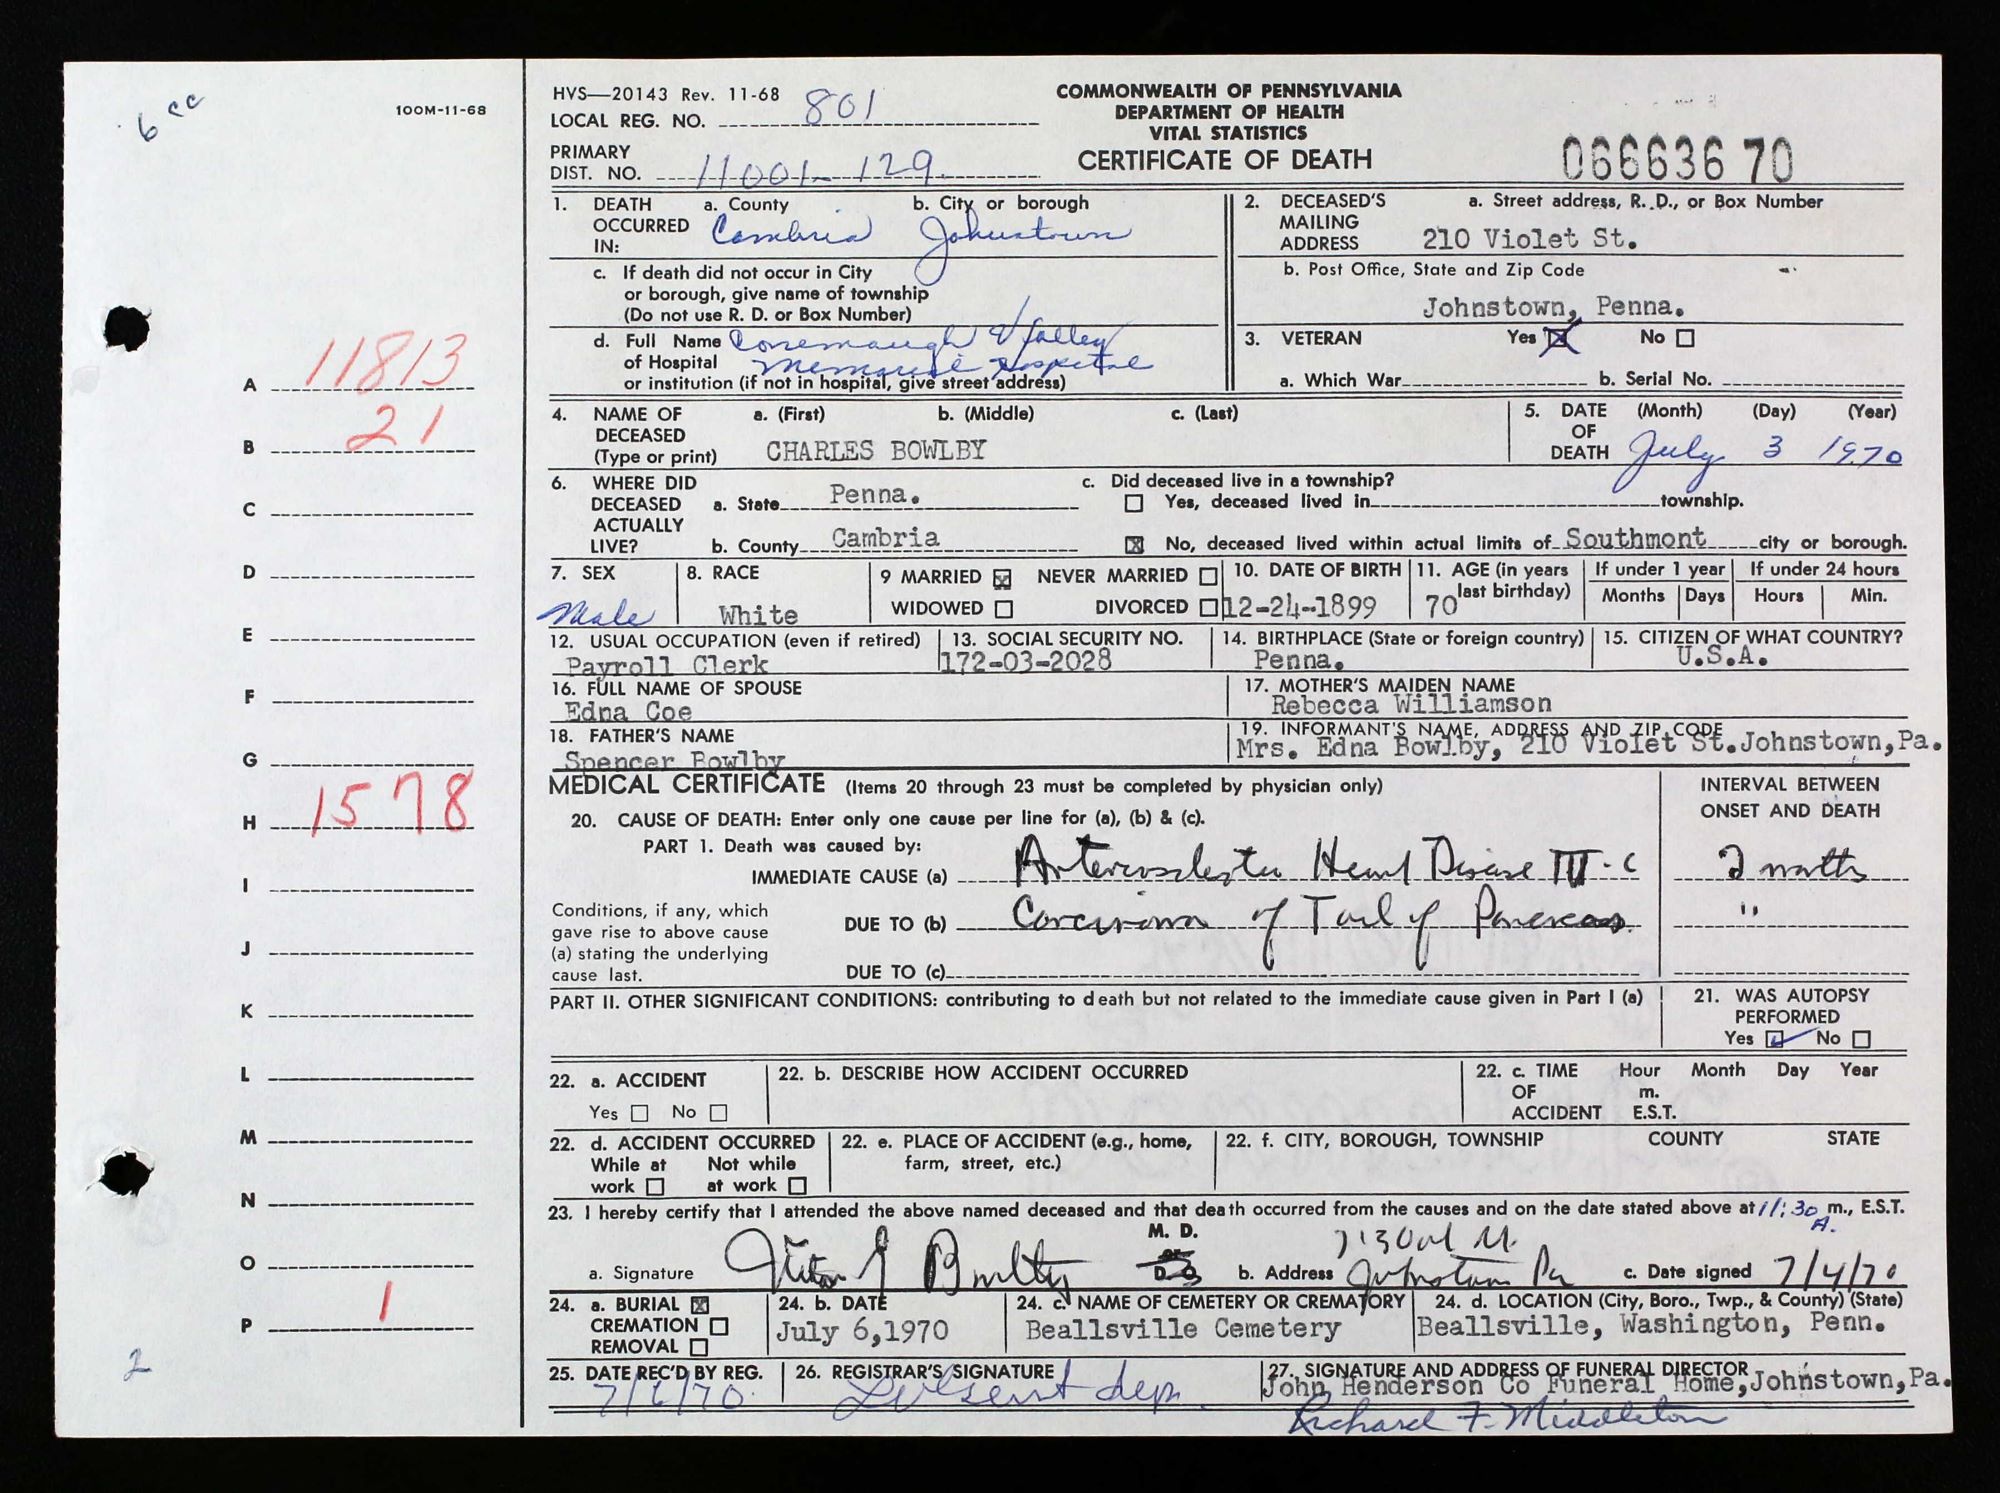 6 cc
100M-11-68
HVS—20143 Rev. 11-68
LOCAL REG. NO. 801
PRIMARY
DIST. NO. 11001-129
COMMONWEALTH OF PENNSYLVANIA
DEPARTMENT OF HEALTH
VITAL STATISTICS
CERTIFICATE OF DEATH
066636 70
1. DEATH OCCURRED IN: a. County Cambria b. City or borough Johnstown
c. If death did not occur in City
or borough, give name of township
(Do not use R. D. or Box Number)
d. Full Name Conemaugh Valley
of Hospital Memorial Hospital
or institution (if not in hospital, give street address)
2. DECEASED'S MAILING ADDRESS a. Street address, R. D., or Box Number
210 Violet St.
b. Post Office, State and Zip Code
Johnstown, Penna.
3. VETERAN Yes No
a. Which War b. Serial No.
4. NAME OF DECEASED (Type or print) a. (First) b. (Middle) c. (Last)
CHARLES BOWLBY
5. DATE OF DEATH (Month) (Day) (Year)
July 3 1970
6. WHERE DID DECEASED ACTUALLY LIVE?
a. State Penna.
b. County Cambria
c. Did deceased live in a township?
Yes, deceased lived in township.
No, deceased lived within actual limits of Southmont city or borough.
7. SEX
Male
8. RACE
White
9 MARRIED NEVER MARRIED
WIDOWED DIVORCED
10. DATE OF BIRTH
12-24-1899
11. AGE (in years last birthday)
70
If under 1 year
Months Days
If under 24 hours
Hours Min.
12. USUAL OCCUPATION (even if retired)
Payroll Clerk
13. SOCIAL SECURITY NO.
172-03-2028
14. BIRTHPLACE (State or foreign country)
Penna.
15. CITIZEN OF WHAT COUNTRY?
U.S.A.
16. FULL NAME OF SPOUSE
Edna Coe
17. MOTHER'S MAIDEN NAME
Rebecca Williamson
18. FATHER'S NAME
Spencer Bowlby
19. INFORMANT'S NAME, ADDRESS AND ZIP CODE
Mrs. Edna Bowlby, 210 Violet St. Johnstown, Pa.
MEDICAL CERTIFICATE (Items 20 through 23 must be completed by physician only)
INTERVAL BETWEEN
ONSET AND DEATH
20. CAUSE OF DEATH: Enter only one cause per line for (a), (b) & (c).
PART 1. Death was caused by:
IMMEDIATE CAUSE (a) Arteriosclerotic Heart Disease III-C 2 months
Conditions, if any, which
gave rise to above cause
(a) stating the underlying
cause last.
DUE TO (b) Carcinoma of Tail of Pancreas "
DUE TO (c)
PART II. OTHER SIGNIFICANT CONDITIONS: contributing to death but not related to the immediate cause given in Part I (a)
21. WAS AUTOPSY
PERFORMED
Yes No
22. a. ACCIDENT
Yes No
22. b. DESCRIBE HOW ACCIDENT OCCURRED
22. c. TIME OF ACCIDENT Hour Month Day Year
m.
E.S.T.
22. d. ACCIDENT OCCURRED
While at work Not while at work
22. e. PLACE OF ACCIDENT (e.g., home, farm, street, etc.)
22. f. CITY, BOROUGH, TOWNSHIP COUNTY STATE
23. I hereby certify that I attended the above named deceased and that death occurred from the causes and on the date stated above at 11:30 A. m., E.S.T.
M. D.
or
D. O.
a. Signature
b. Address Johnstown Pa
c. Date signed 7/4/70
24. a. BURIAL
CREMATION
REMOVAL
24. b. DATE
July 6, 1970
24. c. NAME OF CEMETERY OR CREMATORY
Beallsville Cemetery
24. d. LOCATION (City, Boro., Twp., & County) (State)
Beallsville, Washington, Penn.
25. DATE REC'D BY REG.
7/6/70
26. REGISTRAR'S SIGNATURE
27. SIGNATURE AND ADDRESS OF FUNERAL DIRECTOR
John Henderson Co Funeral Home, Johnstown, Pa.
Richard F. Middleton
A 11813
B 21
C
D
E
F
G
H 1578
I
J
K
L
M
N
O
P 1
2